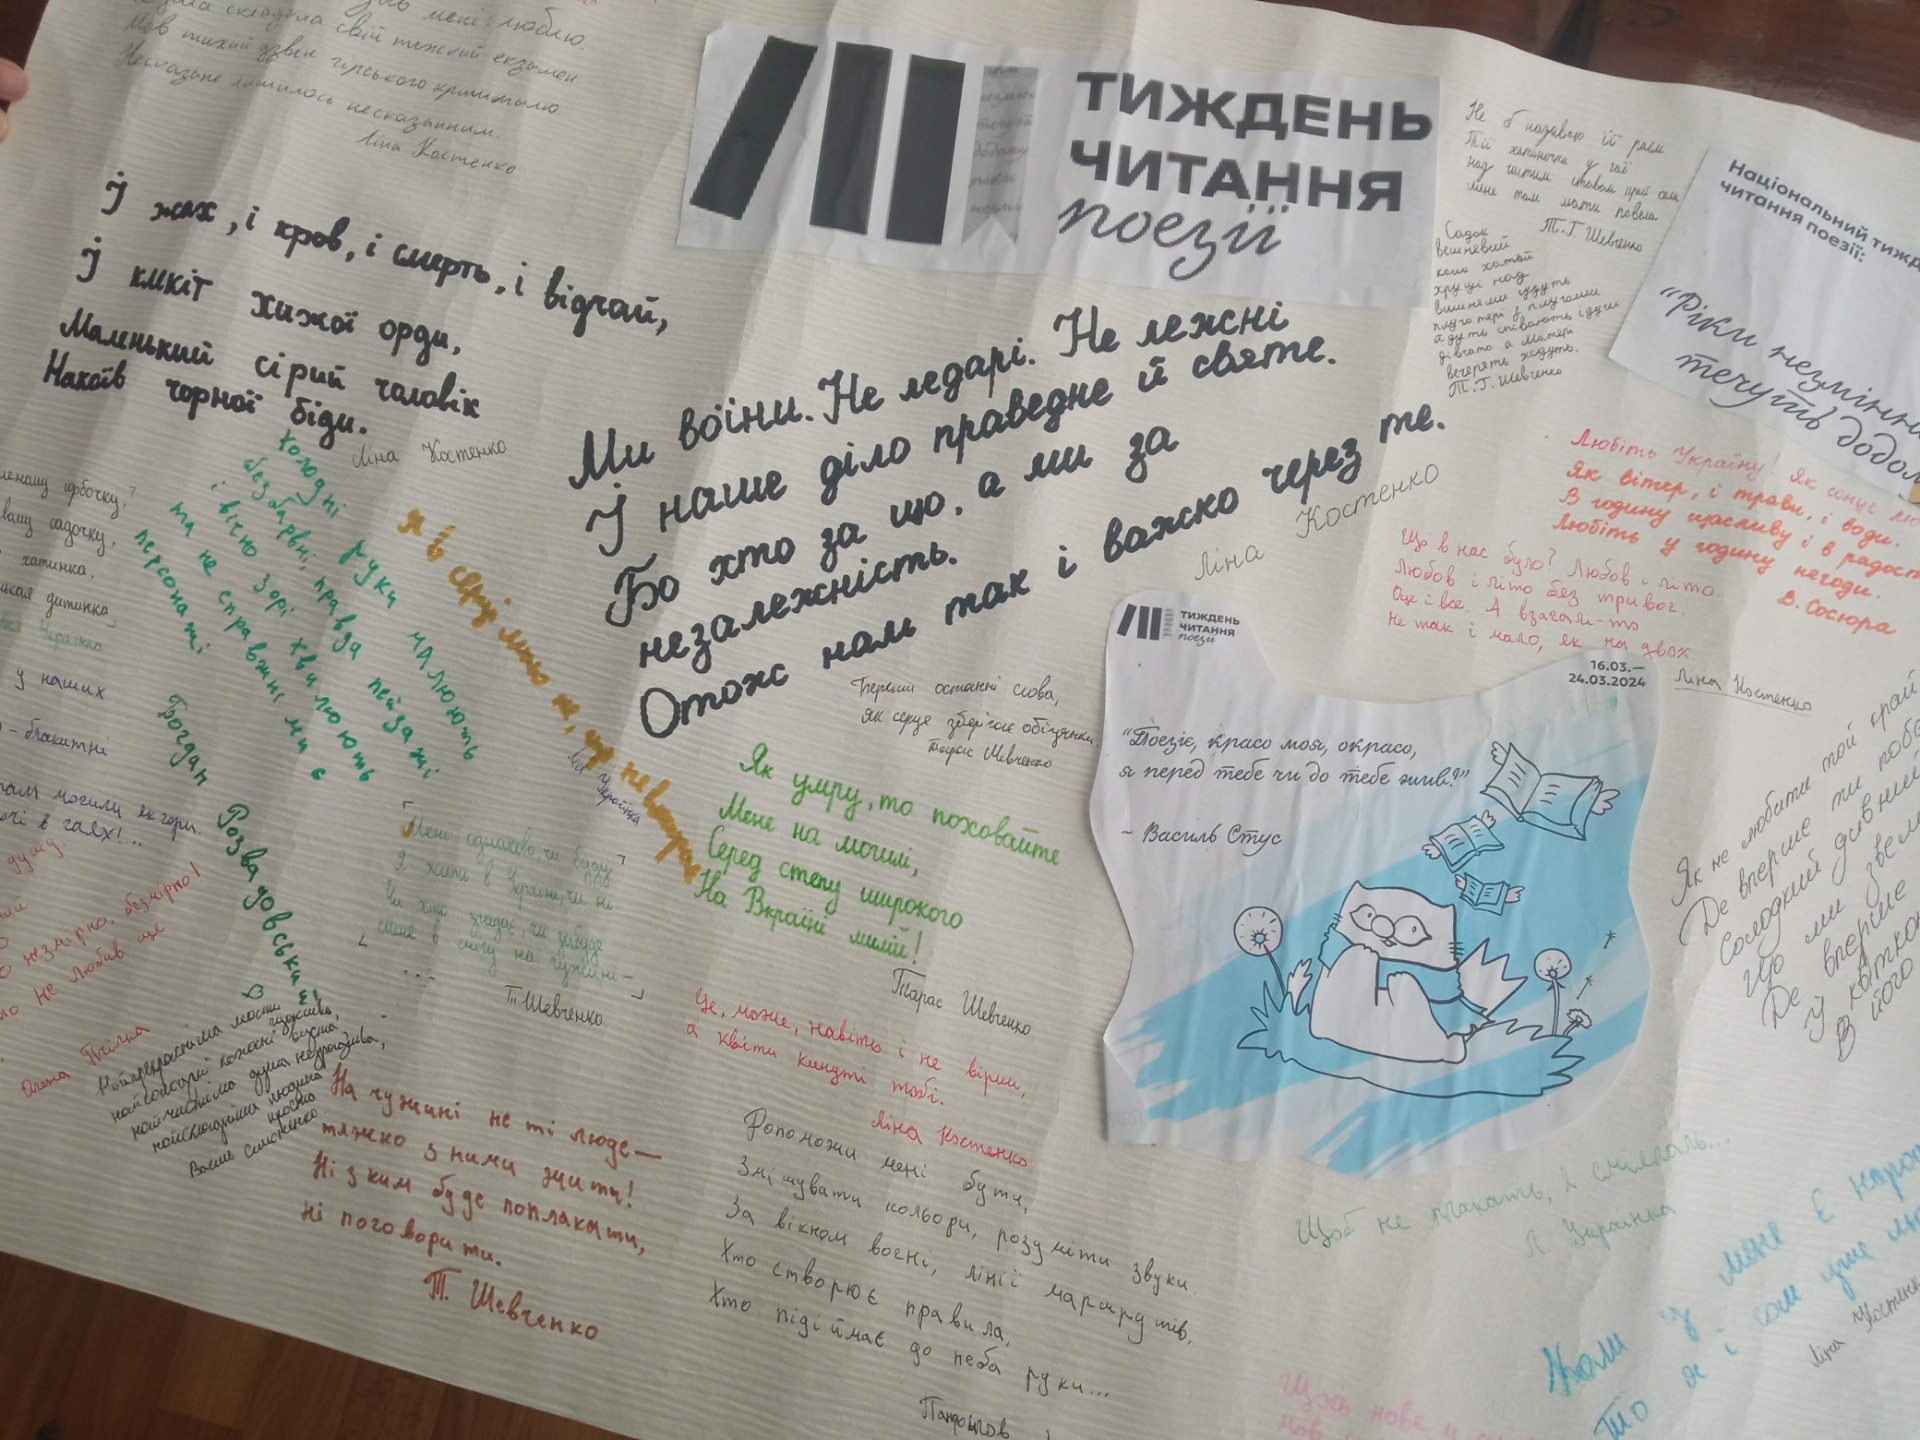 мені і люблю.
складала свій тяжкий екзамен
Мов тихий дзвін гірського кришталю.
Несказане лишилось несказанним.
Ліна Костенко
ТИЖДЕНЬ
ЧИТАННЯ
поезії
І жах, і кров, і смерть, і відчай,
І клкіт хижої орди,
Маленький сірий чоловік
Накоїв чорної біди.
Ліна Костенко
Ми воїни. Не ледарі. Не лежні
І наше діло праведне й святе.
Бо хто за що, а ми за
незалежність.
Отож нам так і важко через те.
Ліна Костенко
Не б назвею її раєм
Тії хатиночки у гаї
Над чистим ставом край села
Мене там мати повела
Т.Г. Шевченко
Садок
вешневий
коло хатой
хрущі над
вишнями гудуть
плугатері з плугами
йдуть співають ідучи
дівчата а матері
вечерять ждуть.
Т.Г. Шевченко
Національний тижд
читання поезії:
“Ріки незмінно
течуть додом
Любіть Україну Як сонце лю
Як вітер, і трави, і води.
В годину щасливу і в радост
Любіть у годину негоди.
В. Сосюра
Що в нас було? Любов і літо.
Любов і літо без тривог.
Оце і все. А взагалі-то
не так і мало, як на двох
Ліна Костенко
садочку,
хатинка,
дитинка
у наших
блакитні
могили як гори.
в гаях!...
душу.
незмірно, безмірно!
не любив ще
Олена Пчілка
холодні руки малюють
безбарвні, правда пейзажі
і вічно зорі хвилюють
та не справжні ми є
персонажі
Богдан Розвадовський
Я в серці маю те, що не вмирає
Леся Українка
Бережи останні слова,
як серце зберігає обіцянки.
Тарас Шевченко
Як умру, то поховайте
Мене на могилі,
Серед степу широкого
На Вкраїні милій!
Тарас Шевченко
Мені однаково, чи буду
Я жить в Україні, чи ні
Чи хто згадає, чи забуде
мене в снігу на чужині-
...
Т Шевченко
ТИЖДЕНЬ
ЧИТАННЯ
поезії
16.03.—
24.03.2024
“Поезіє, красо моя, окрасо,
я перед тебе чи до тебе жив?”
~ Василь Стус
Як не любити той край
Де вперше ти поба
Солодкий дивний
Що ми звем
Де вперше
У квітко
В його
Це, може, навіть і не вірші,
а квіти кинуті тобі.
Ліна Костенко
Найпрекрасніша мати щаслива,
найсолодші кохані вуста
найчистіша душа незрадлива,
найскладніша людина
проста
Василь Симоненко
На чужині не ті люде—
тяжко з ними жити!
Ні з ким буде поплакати,
ні поговорити.
Т. Шевченко
Допоможи мені бути,
Змішувати кольори, розуміти звуки.
За вікном вогні, лінії маршрутів,
Хто створює правила,
Хто підіймає до неба руки...
Щоб не плакать, я сміялась...
Л Українка
У мене є народ
Коли
То я і сам уже
Ліна Костенко
Щось нове
мов